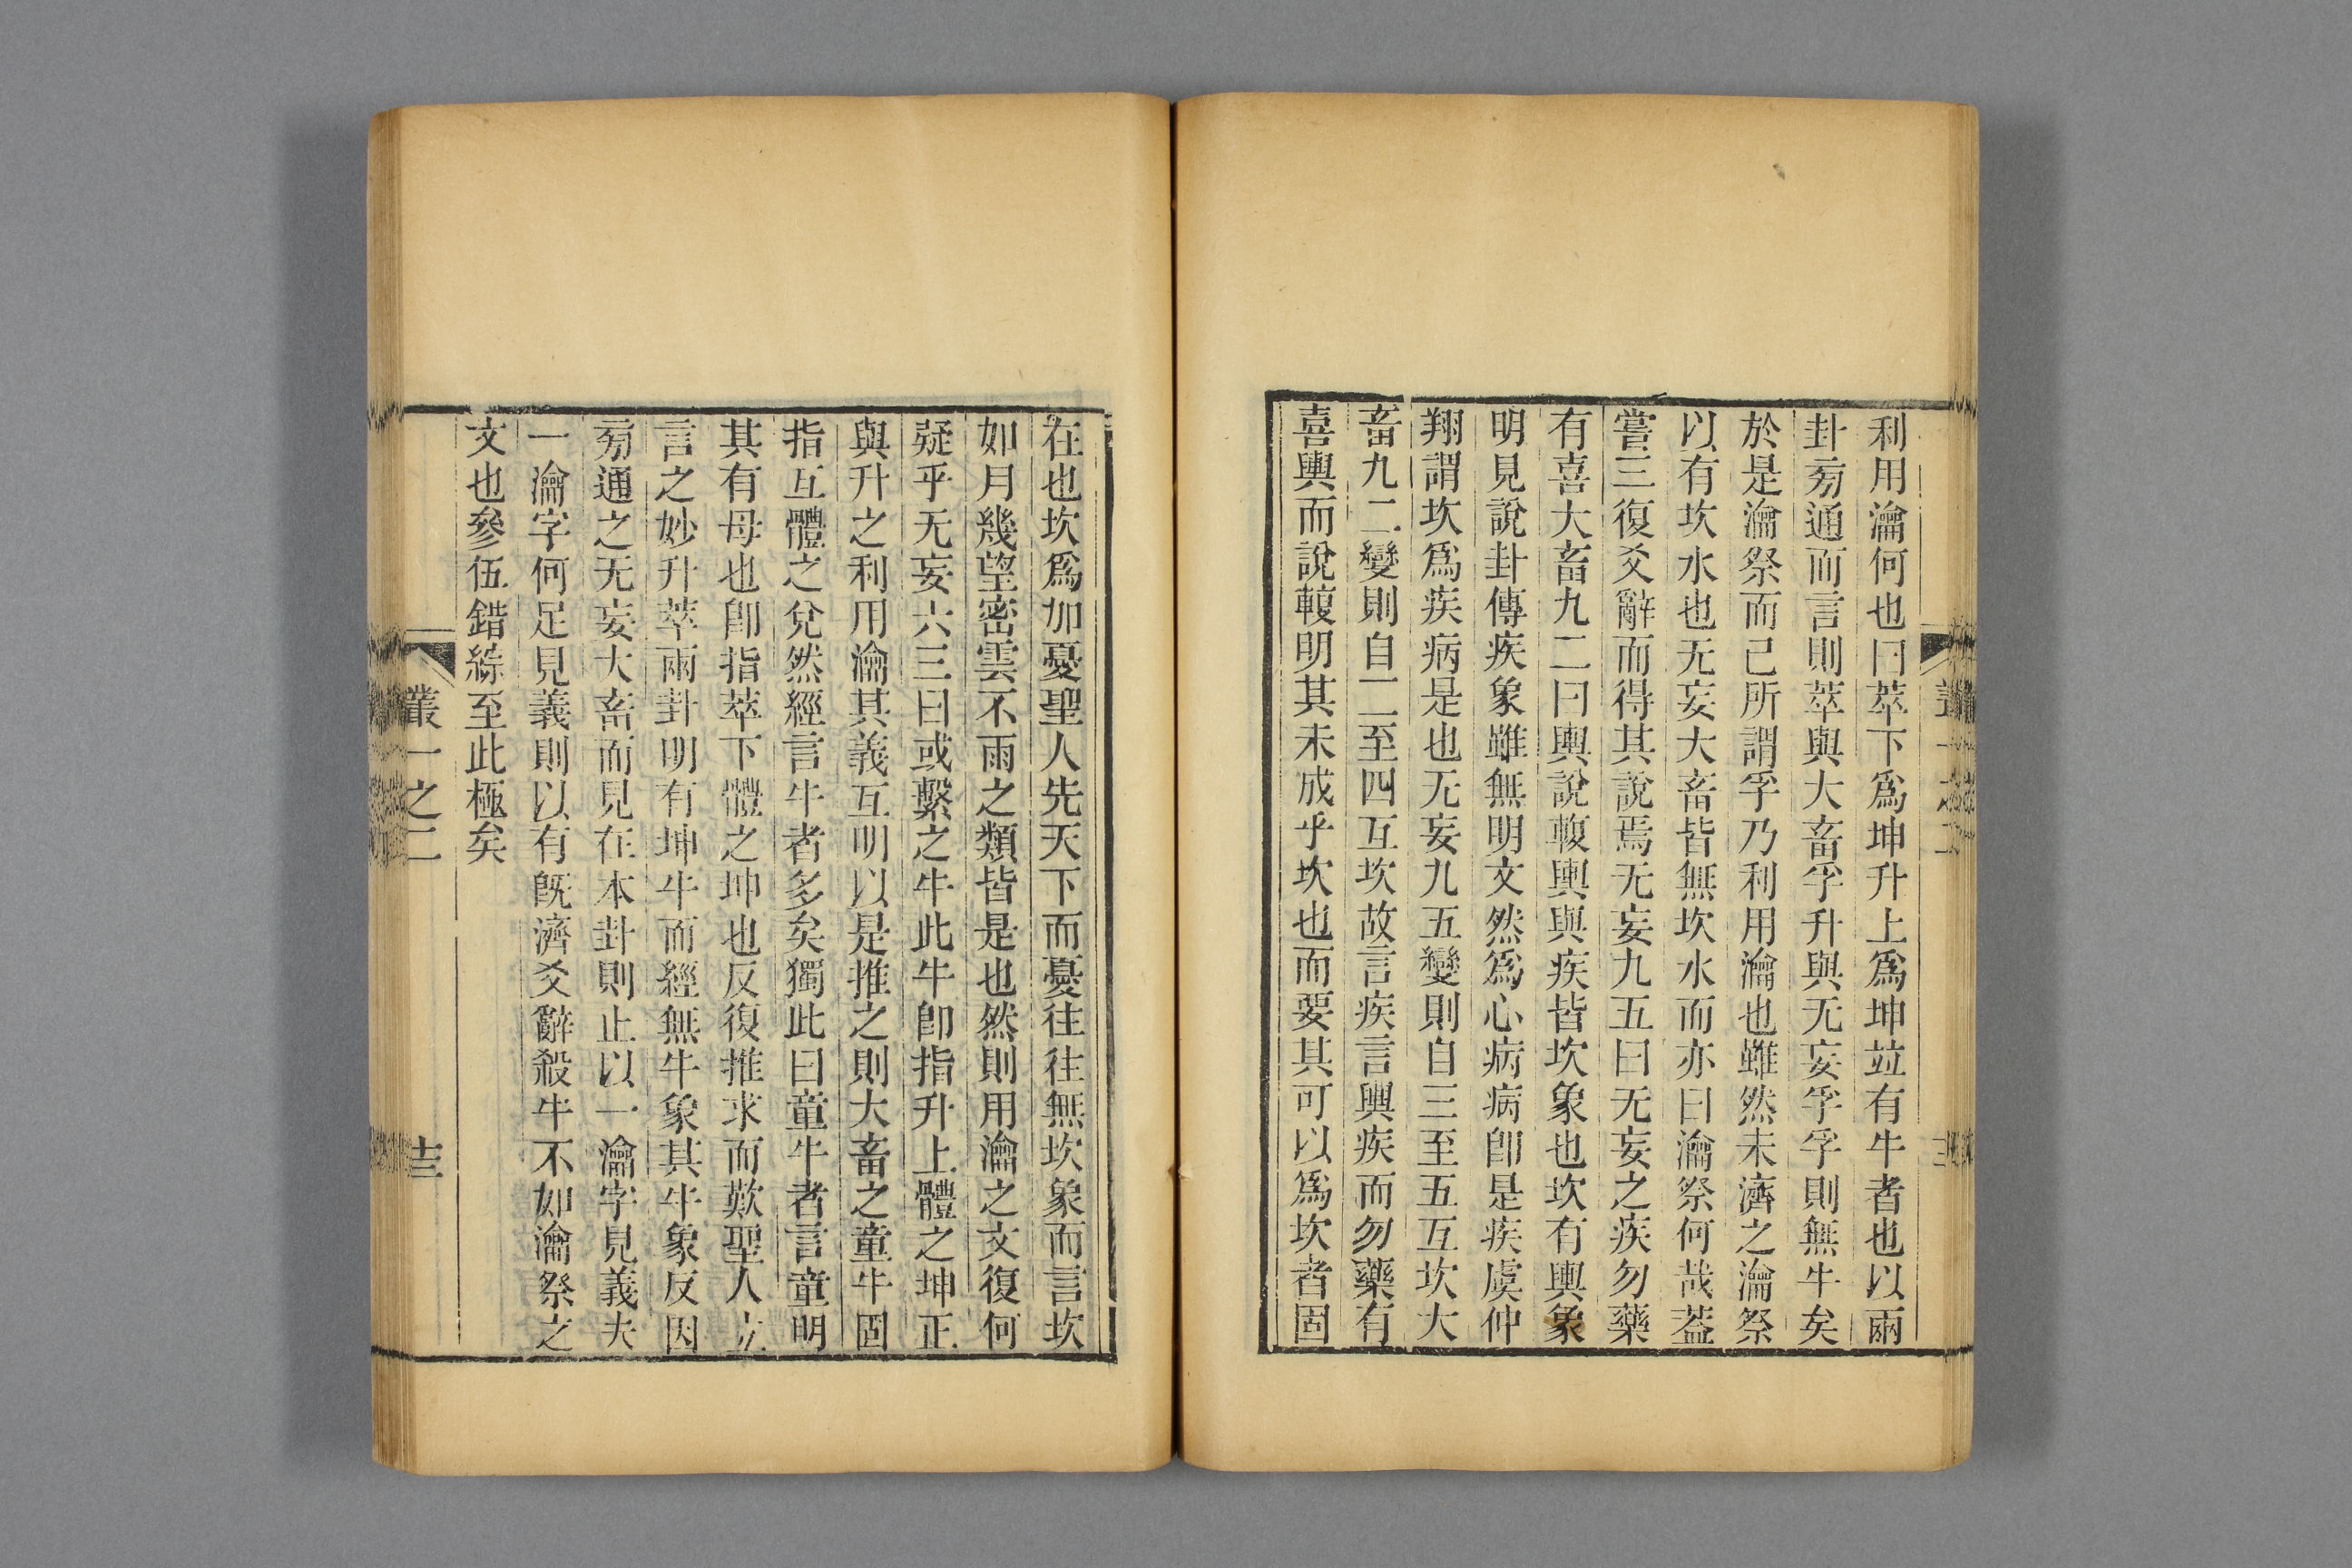 利用瀹何也曰萃下爲坤升上爲坤竝有牛者也以兩
卦旁通而言則萃與大畜孚升與无妄孚孚則無牛矣
於是瀹祭而已所謂孚乃利用瀹也雖然未濟之瀹祭
以有坎水也无妄大畜皆無坎水而亦曰瀹祭何哉葢
嘗三復爻辭而得其說焉无妄九五曰无妄之疾勿藥
有喜大畜九二曰輿說輹輿與疾皆坎象也坎有輿象
明見說卦傳疾象雖無明文然爲心病病卽是疾虞仲
翔謂坎爲疾病是也无妄九五變則自三至五互坎大
畜九二變則自二至四互坎故言疾言輿疾而勿藥有
喜輿而說輹明其未成乎坎也而要其可以爲坎者固
在也坎爲加憂聖人先天下而憂往往無坎象而言坎
如月幾望密雲不雨之類皆是也然則用瀹之文復何
疑乎无妄六三曰或繫之牛此牛卽指升上體之坤正
與升之利用瀹其義互明以是推之則大畜之童牛固
指互體之兌然經言牛者多矣獨此曰童牛者言童明
其有母也卽指萃下體之坤也反復推求而歎聖人立
言之妙升萃兩卦明有坤牛而經無牛象其牛象反因
旁通之无妄大畜而見在本卦則止以一瀹字見義夫
一瀹字何足見義則以有旣濟爻辭殺牛不如瀹祭之
文也參伍錯綜至此極矣
叢一之二
十三